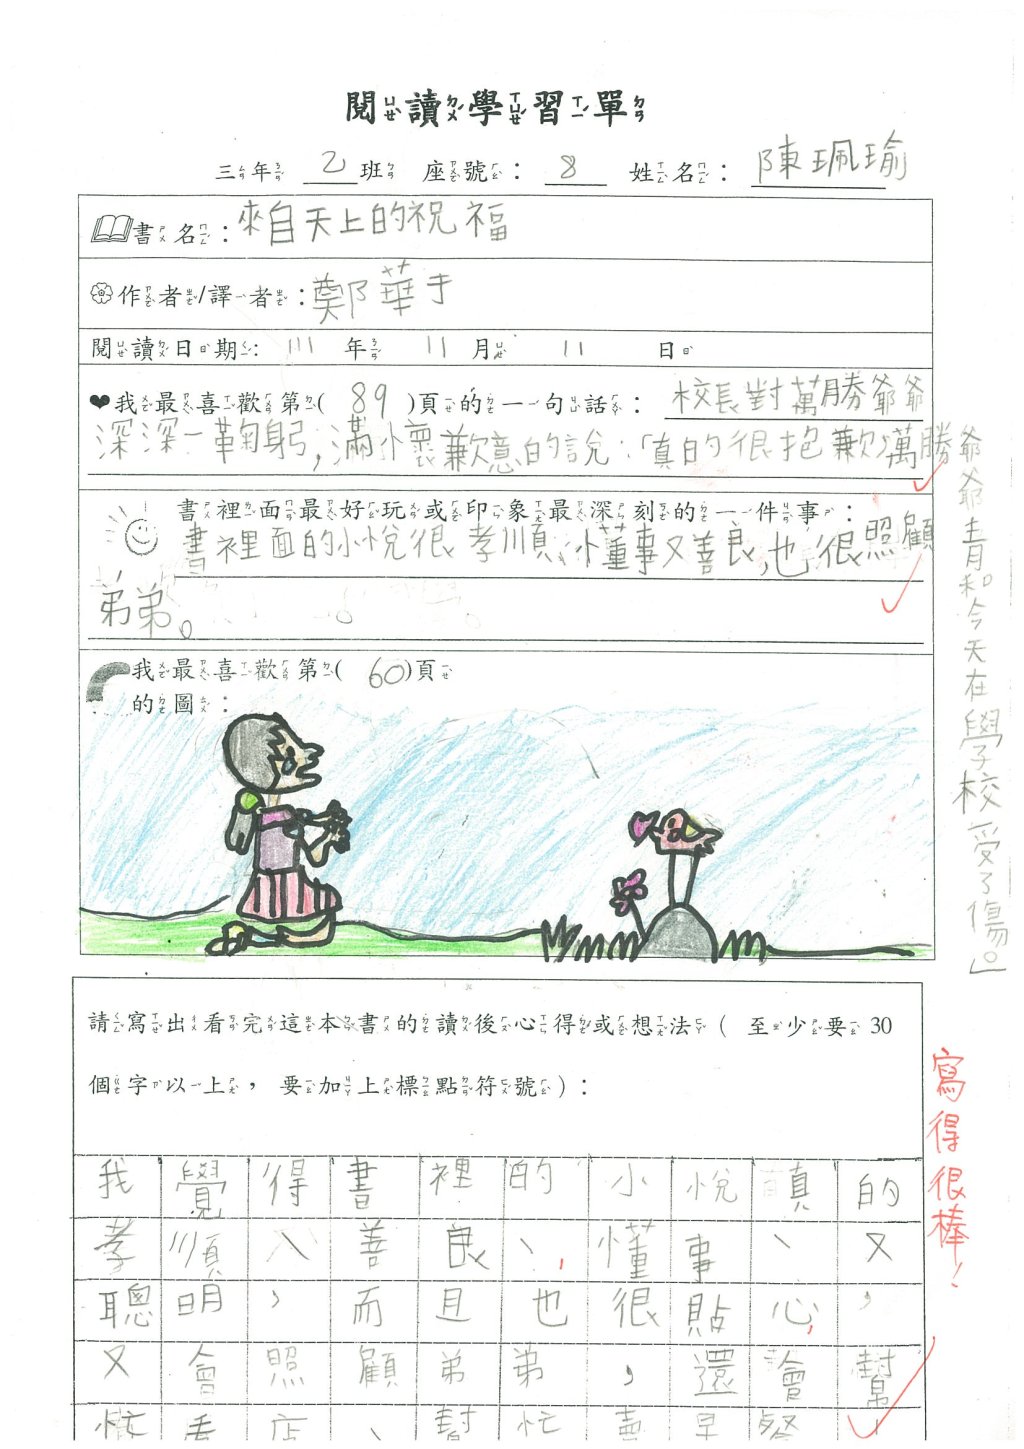 閱讀學習單
三年 乙班 座號：8 姓名：陳珮瑜
書名：來自天上的祝福
作者/譯者：鄭華于
閱讀日期：111年11月11日
❤我最喜歡第(89)頁的一句話：校長對萬勝爺爺
深深一鞠躬，滿懷歉意的說：「真的很抱歉，萬勝
爺爺青和今天在學校受了傷。」
書裡面最好玩或印象最深刻的一件事：
書裡面的小悅很孝順、懂事又善良，也很照顧
弟弟。
我最喜歡第(60)頁
的圖：
請寫出看完這本書的讀後心得或想法(至少要30
個字以上，要加上標點符號)：
我覺得書裡的小悅真的
孝順、善良、懂事、又
聰明，而且也很貼心，
又會照顧弟弟，還會幫
忙看店、幫忙賣早餐
寫得很棒！